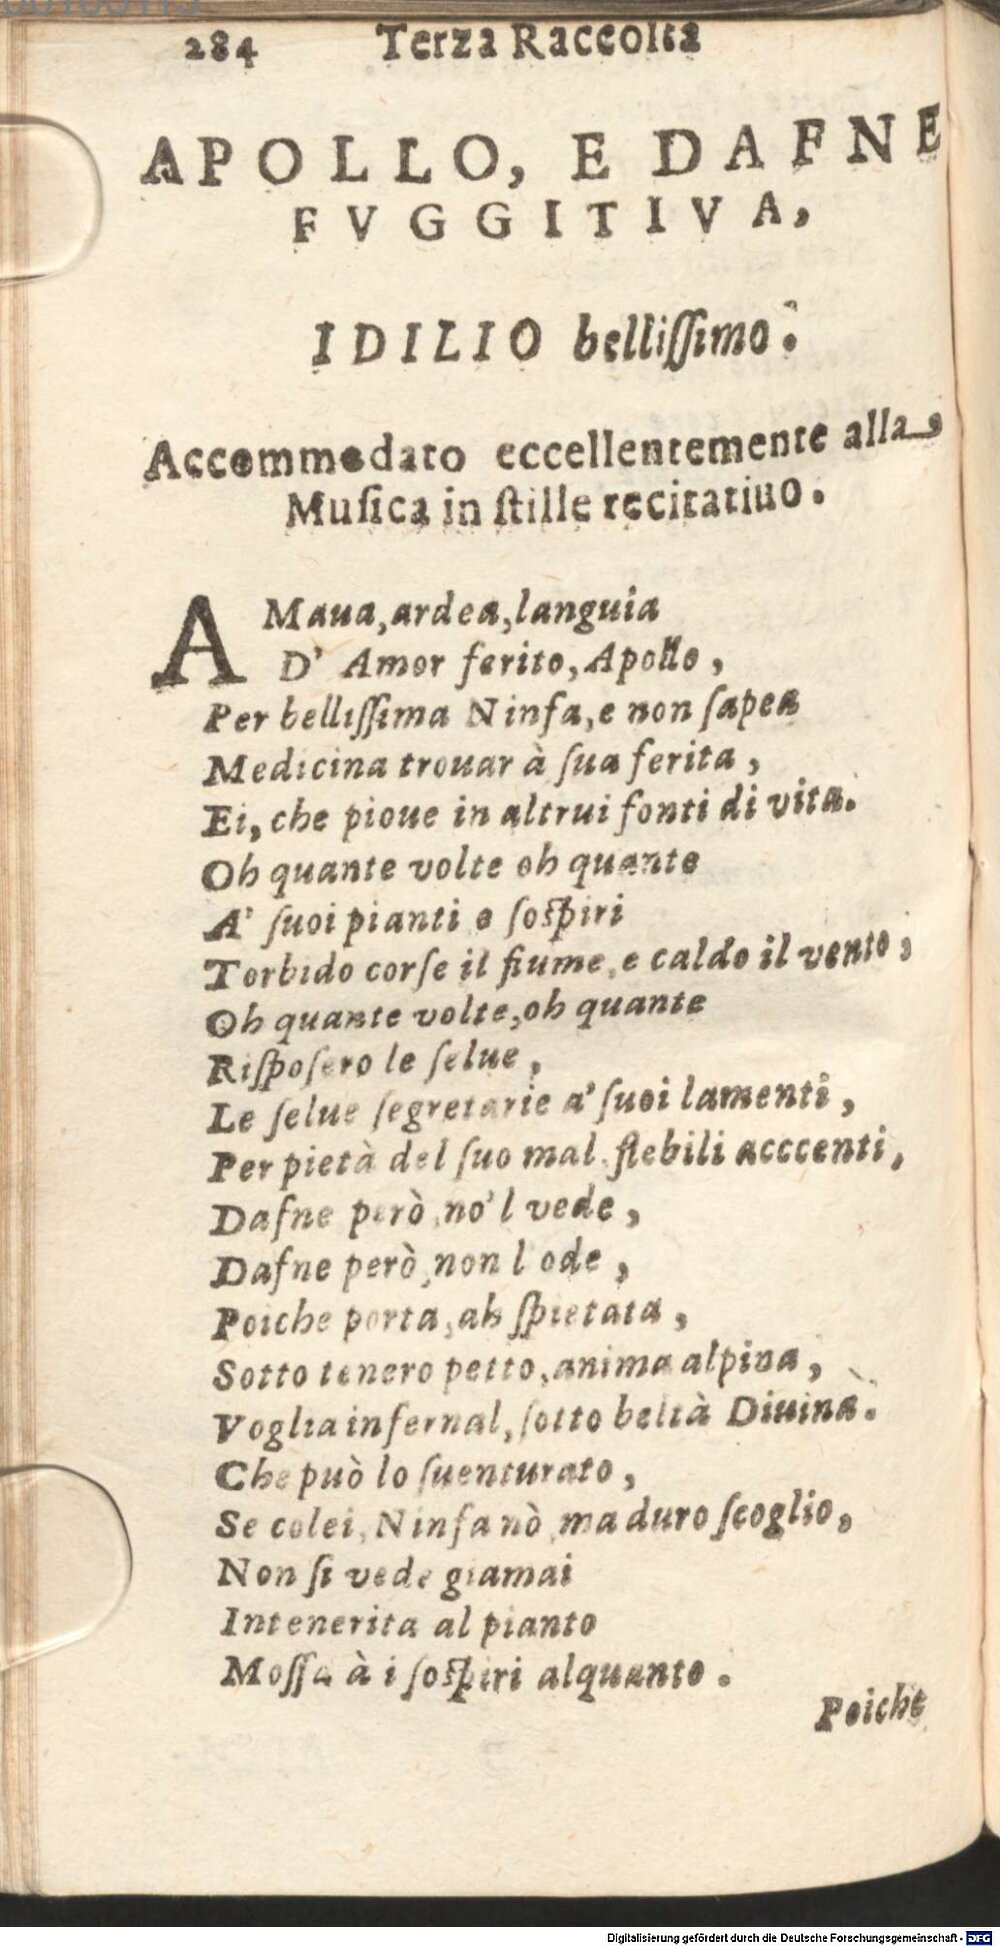 284 Terza Raccolta
APOLLO, E DAFNE
FVGGITIVA,
IDILIO belliſſimo.
Accommodato eccellentemente alla
Muſica in ſtille recitatiuo.
AMaua, ardea, languia
D' Amor ferito, Apollo,
Per belliſſima Ninfa, e non ſapea
Medicina trouar à ſua ferita,
Ei, che pioue in altrui fonti di vita.
Oh quante volte oh quante
A' ſuoi pianti e ſoſpiri
Torbido corſe il fiume, e caldo il vento,
Oh quante volte, oh quante
Riſpoſero le ſelue,
Le ſelue ſegretarie a' ſuoi lamenti,
Per pietà del ſuo mal flebili acccenti,
Dafne però, no'l vede,
Dafne però, non l ode,
Poiche porta, ah ſpietata,
Sotto tenero petto, anima alpina,
Voglia infernal, ſotto beltà Diuina.
Che può lo ſuenturato,
Se colei, Ninfa nò, ma duro ſcoglio,
Non ſi vede giamai
Intenerita al pianto
Moſſa à i ſoſpiri alquanto.
Poiche
Digitalisierung gefördert durch die Deutsche Forschungsgemeinschaft - DFG